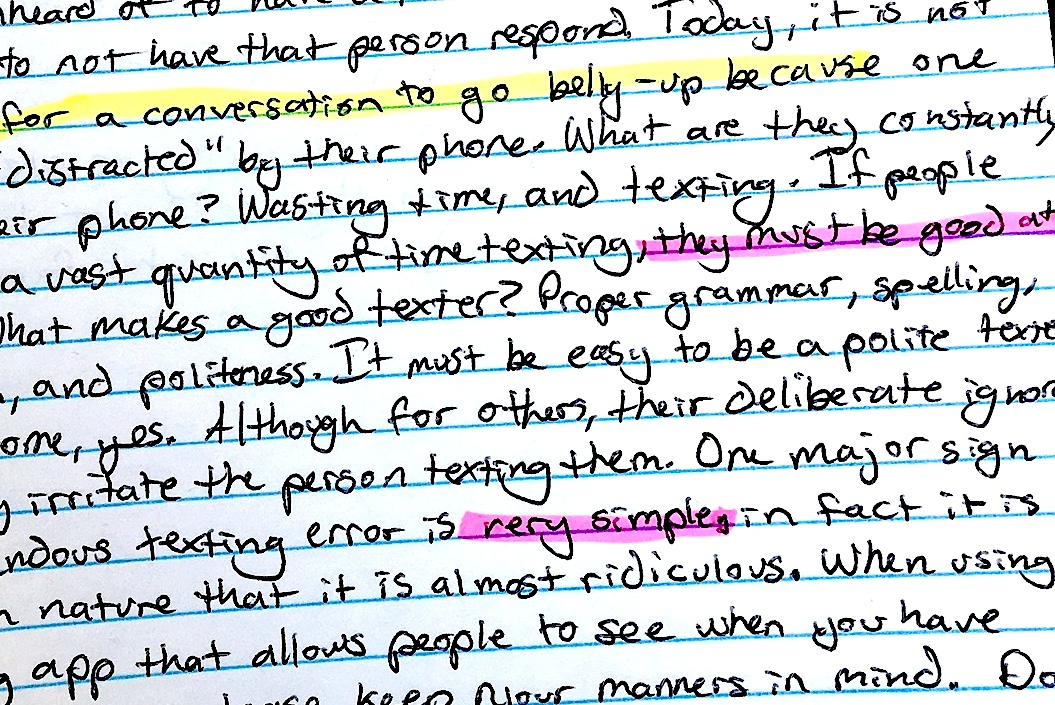 heard of to have
to not have that person respond. Today, it is not
for a conversation to go belly-up because one
distracted" by their phone. What are they constantly
eir phone? Wasting time, and texting. If people
a vast quantity of time texting, they must be good at
hat makes a good texter? Proper grammar, spelling,
, and politeness. It must be easy to be a polite texte
ome, yes. Although for others, their deliberate ignor
irritate the person texting them. One major sign
ndous texting error is very simple, in fact it is
nature that it is almost ridiculous. When using
app that allows people to see when you have
keep your manners in mind. Do